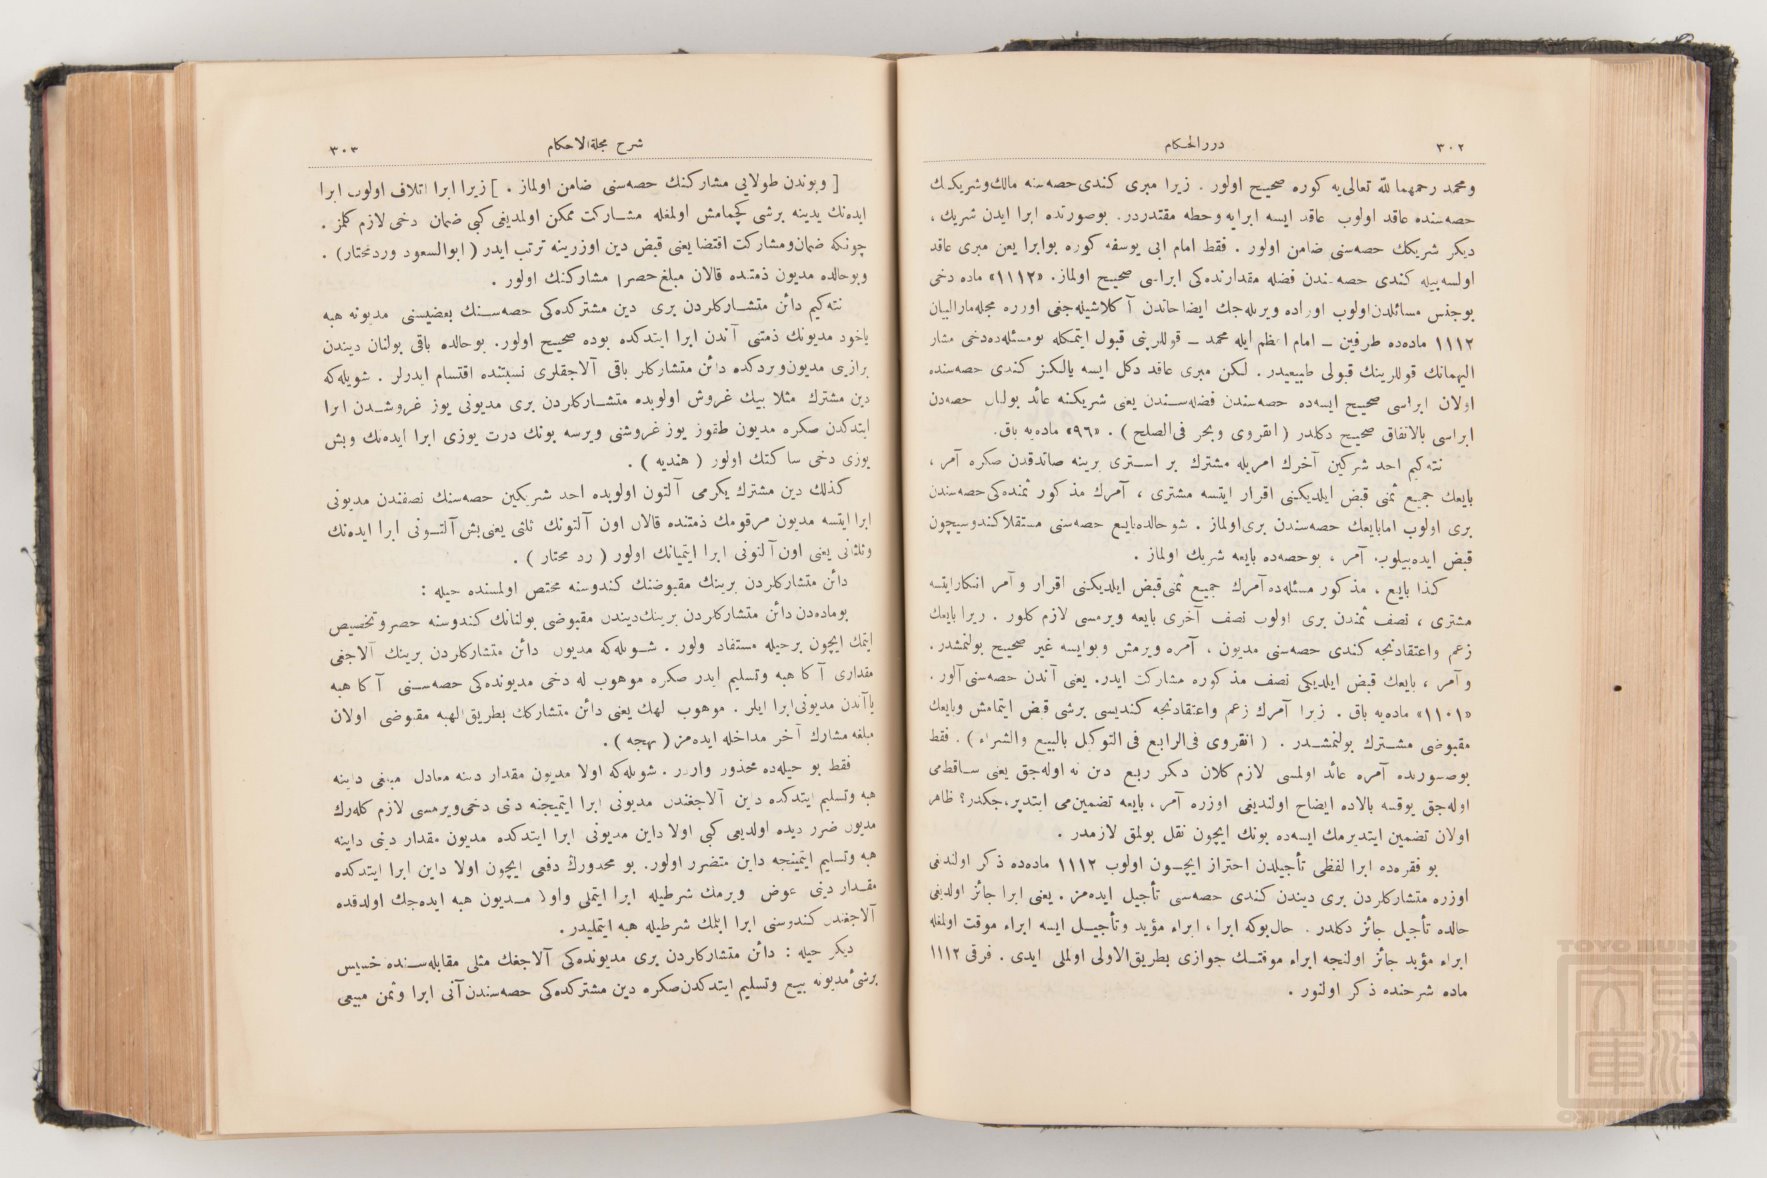 ٣٠٢
دررالحكام
ومحمد رحمهما لله تعالى‌يه كوره صحيح اولور . زيرا مبرى كندى حصه‌سنه مالك وشريكنك
حصه‌سنده عاقد اولوب عاقد ايسه ابرايه وحطه مقتدردر. بوصورتده ابرا ايدن شريك ،
ديكر شريكك حصه‌سنى ضامن اولور . فقط امام ابى يوسفه كوره بوابرا يعن مبرى عاقد
اولسه‌بيله كندى حصه‌سندن فضله مقدارنده‌كى ابراسى صحيح اولماز. «١١١٢» ماده دخى
بوجنس مسائلدن اولوب اوراده ويريله‌جك ايضاحاتدن آكلاشيله‌جغى اوزره مجله‌مارالبيان
١١١٢ ماده‌ده طرفين ــ امام اعظم ايله محمد ــ قوللرينى قبول ايتمكله بومسئله‌ده‌دخى مشار
اليهمانك قوللرينك قبولى طبيعيدر . لكن مبرى عاقد دكل ايسه يالكز كندى حصه‌سنده
اولان ابراسى صحيح ايسه‌ده حصه‌سندن فضله‌سندن يعنى شريكنه عائد بولنان حصه‌دن
ابراسى بالاتفاق صحيح دكلدر ( انقروى وبحر فى‌الصلح ) . «٩٦» ماده‌يه باق.
نته‌كيم احد شركين آخرك امريله مشترك بر استرى برينه صاتدقدن صكره آمر ،
بايعك جميع ثمنى قبض ايلديكنى اقرار ايتسه مشترى ، آمرك مذكور ثمنده‌كى حصه‌سندن
برى اولوب امابايعك حصه‌سندن برى‌اولماز . شو حالده‌بايع حصه‌سنى مستقلا كندوسيچون
قبض ايده‌بيلوب. آمر ، بوحصه‌ده بايعه شريك اولماز .
كذا بايع ، مذكور مسئله‌ده آمرك جميع ثمنى‌قبض ايلديكنى اقرار و آمر انكارايتسه
مشترى ، نصف ثمندن برى اولوب نصف آخرى بايعه ويرمسى لازم كلور . زيرا بايعك
زعم واعتقادنجه كندى حصه‌سنى مديون ، آمره ويرمش وبوايسه غير صحيح بولنمشدر.
و آمر ، بايعك قبض ايلديكى نصف مذكوره مشاركت ايدر. يعنى آندن حصه‌سنى آلور .
«١١٠١» ماده‌يه باق . زيرا آمرك زعم واعتقادنجه كنديسى برشى قبض ايتمامش وبايعك
مقبوضى مشترك بولنمشدر . ( انقروى فى‌الرابع فى التوكيل بالبيع والشراء ) . فقط
بوصورتده آمره عائد اولمسى لازم كلان ديكر ربع دن نه اوله‌جق يعنى ساقط‌مى
اوله‌جق يوقسه بالاده ايضاح اولنديغى اوزره آمر ، بايعه تضمين‌مى ايتديره‌جكدر؟ ظاهر
اولان تضمين ايتديرمك ايسه‌ده بونك ايچون نقل بولمق لازمدر .
بو فقره‌ده ابرا لفظى تأجيلدن احتراز ايچون اولوب ١١١٢ ماده‌ده ذكر اولندغى
اوزره متشاركلردن برى ديندن كندى حصه‌سى تأجيل ايده‌مز . يعنى ابرا جائز اولديغى
حالده تأجيل جائز دكلدر . حال‌بوكه ابرا ، ابراء مؤيد وتأجيل ايسه ابراء موقت اولمغله
ابراء مؤيد جائز اولنجه ابراء موقتك جوازى بطريق‌الاولى اولملى ايدى . فرقى ١١١٢
ماده شرحنده ذكر اولنور .
شرح مجلةالاحكام
٣٠٣
[ وبوندن طولايى مشاركنك حصه‌سنى ضامن اولماز . ] زيرا ابرا اتلاف اولوب ابرا
ايده‌نك يدينه برشى كچمامش اولمغله مشاركت ممكن اولمديغى كبى ضمان دخى لازم كلمز .
چونكه ضمان‌ومشاركت اقتضا يعنى قبض دين اوزرينه ترتب ايدر ( ابوالسعود وردمحتار ) .
وبوحالده مديون ذمتنده قالان مبلغ حصراً مشاركنك اولور .
نته‌كيم دائن متشاركلردن برى دين مشتركده‌كى حصه‌سنك بعضيسنى مديونه هبه
ياخود مديونك ذمتنى آندن ابرا ايتدكده بوده صحيح اولور. بوحالده باقى بولنان ديندن
برازينى مديون‌ويردكده دائن متشاركلر باقى آلاجقلرى نسبتنده اقتسام ايدرلر . شويله‌كه
دين مشترك مثلا بيك غروش اولوبده متشاركلردن برى مديونى يوز غروشدن ابرا
ايتدكدن صكره مديون طقوز يوز غروشنى ويرسه بونك درت يوزى ابرا ايده‌نك وبش
يوزى دخى ساكتك اولور ( هنديه ) .
كذلك دين مشترك يكرمى آلتون اولوبده احد شريكين حصه‌سنك نصفندن مديونى
ابرا ايتسه مديون مرقومك ذمتنده قالان اون آلتونك ثلثى يعنى‌بش آلتونى ابرا ايده‌نك
وثلثانى يعنى اون آلتونى ابرا ايتميانك اولور ( رد محتار ) .
دائن متشاركلردن برينك مقبوضنك كندوسنه مختص اولمسنده حيله :
بوماده‌دن دائن متشاركلردن برينك‌ديندن مقبوضى بولنانك كندوسنه حصروتخصيص
ايتمك ايچون برحيله مستفاد اولور . شويله‌كه مديون دائن متشاركلردن برينك آلاجغى
مقدارى آكا هبه وتسليم ايدر صكره موهوب له دخى مديونده‌كى حصه‌سنى آكا هبه
ياآندن مديونى‌ابرا ايلر . موهوب لهك يعنى دائن متشاركك بطريق‌الهبه مقبوضى اولان
مبلغه مشارك آخر مداخله ايده‌مز ( بهجه ) .
فقط بو حيله‌ده محذور واردر . شويله‌كه اولا مديون مقدار دينه معادل مبلغى داينه
هبه وتسليم ايتدكده داين آلاجغندن مديونى ابرا ايتمينجه دنى دخى‌ويرمسى لازم كله‌رك
مديون ضرر ديده اولديغى كبى اولا داين مديونى ابرا ايتدكده مديون مقدار دينى داينه
هبه وتسليم ايتمينجه داين متضرر اولور. بو محذورك دفعى ايچون اولا داين ابرا ايتدكده
مقدار دينى عوض ويرمك شرطيله ابرا ايتملى واولا مديون هبه ايده‌جك اولدقده
آلاجغندن كندوسنى ابرا ايلمك شرطيله هبه ايتمليدر .
ديكر حيله : دائن متشاركلردن برى مديونده‌كى آلاجغك مثلى مقابله‌سنده خسيس
برشئ مديونه بيع وتسليم ايتدكدن صكره دين مشتركده‌كى حصه‌سندن آنى ابرا وثمن مبيعى
TOYO BUNKO
東洋文庫
TOYO BUNKO